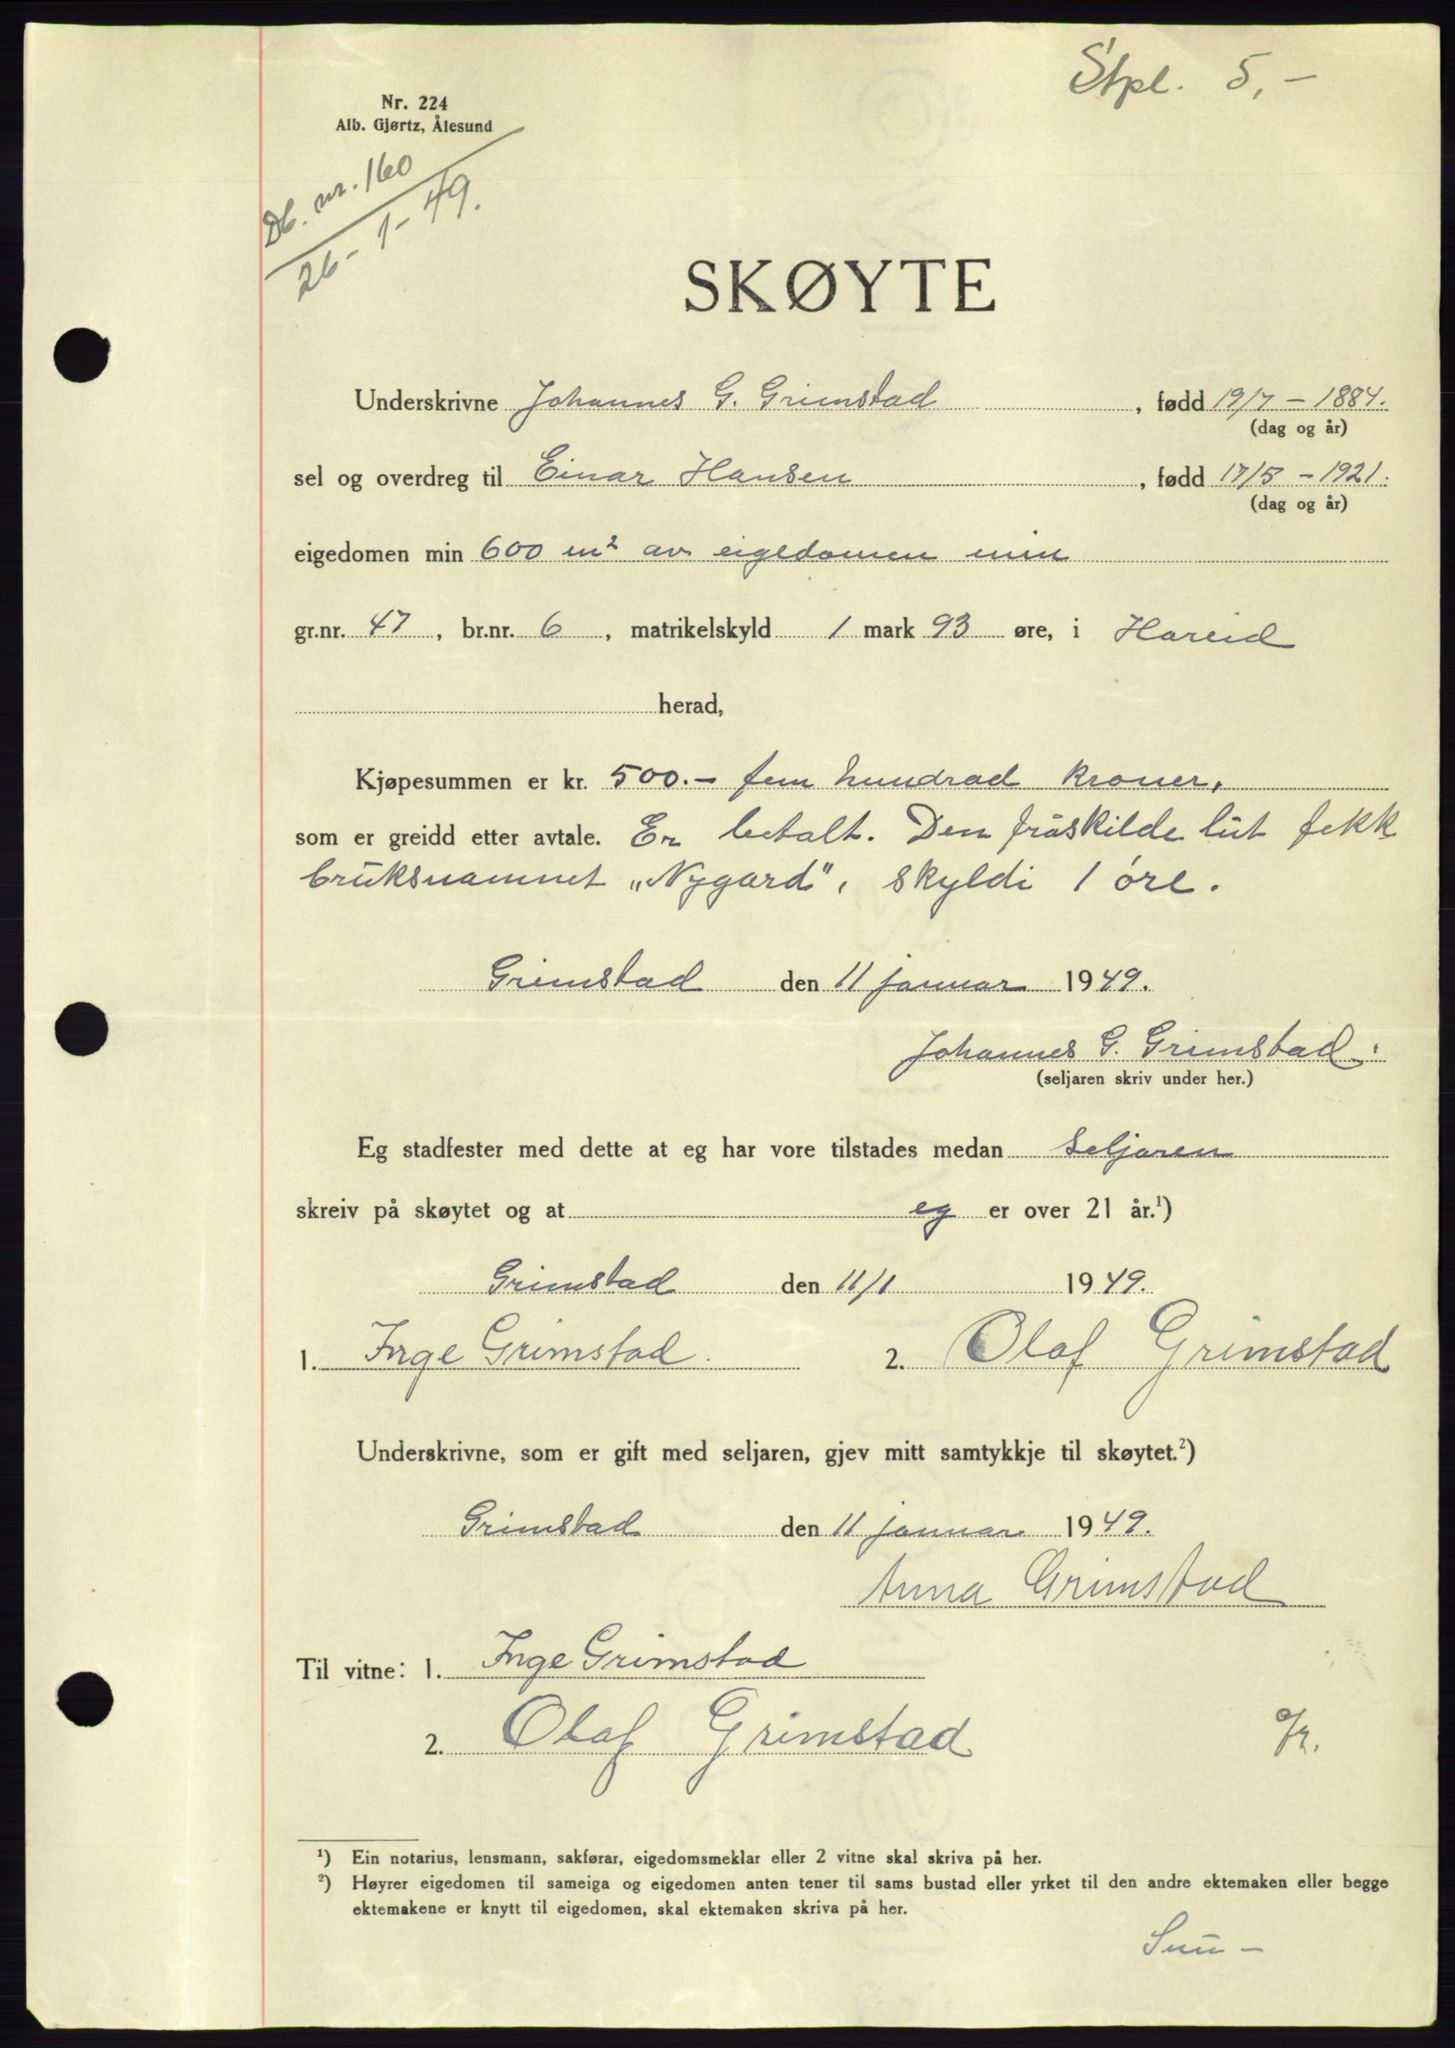 Stpl. 5,-
Nr. 224
Alb. Gjørtz, Ålesund
Db. nr. 160
26-1-49.
SKØYTE
Underskrivne Johannes G. Grimstad, fødd 19/7 - 1884.
(dag og år)
sel og overdreg til Einar Hansen, fødd 17/5 - 1921.
(dag og år)
eigedomen min 600 m² av eigedomen min
gr.nr. 47, br.nr. 6, matrikelskyld 1 mark 93 øre, i Hareid
herad,
Kjøpesummen er kr. 500.- fem hundrad kroner,
som er greidd etter avtale. Er betalt. Den fråskilde lut fekk
bruksnamnet „Nygard", skyldi 1 øre.
Grimstad den 11 januar 1949.
Johannes G. Grimstad.
(seljaren skriv under her.)
Eg stadfester med dette at eg har vore tilstades medan seljaren
skreiv på skøytet og at eg er over 21 år.¹)
Grimstad den 11/1 1949.
1. Inge Grimstad. 2. Olaf Grimstad
Underskrivne, som er gift med seljaren, gjev mitt samtykkje til skøytet.²)
Grimstad den 11 januar 1949.
Anna Grimstad
Til vitne: 1. Inge Grimstad
2. Olaf Grimstad
¹) Ein notarius, lensmann, sakførar, eigedomsmeklar eller 2 vitne skal skriva på her.
²) Høyrer eigedomen til sameiga og eigedomen anten tener til sams bustad eller yrket til den andre ektemaken eller begge
ektemakene er knytt til eigedomen, skal ektemaken skriva på her.